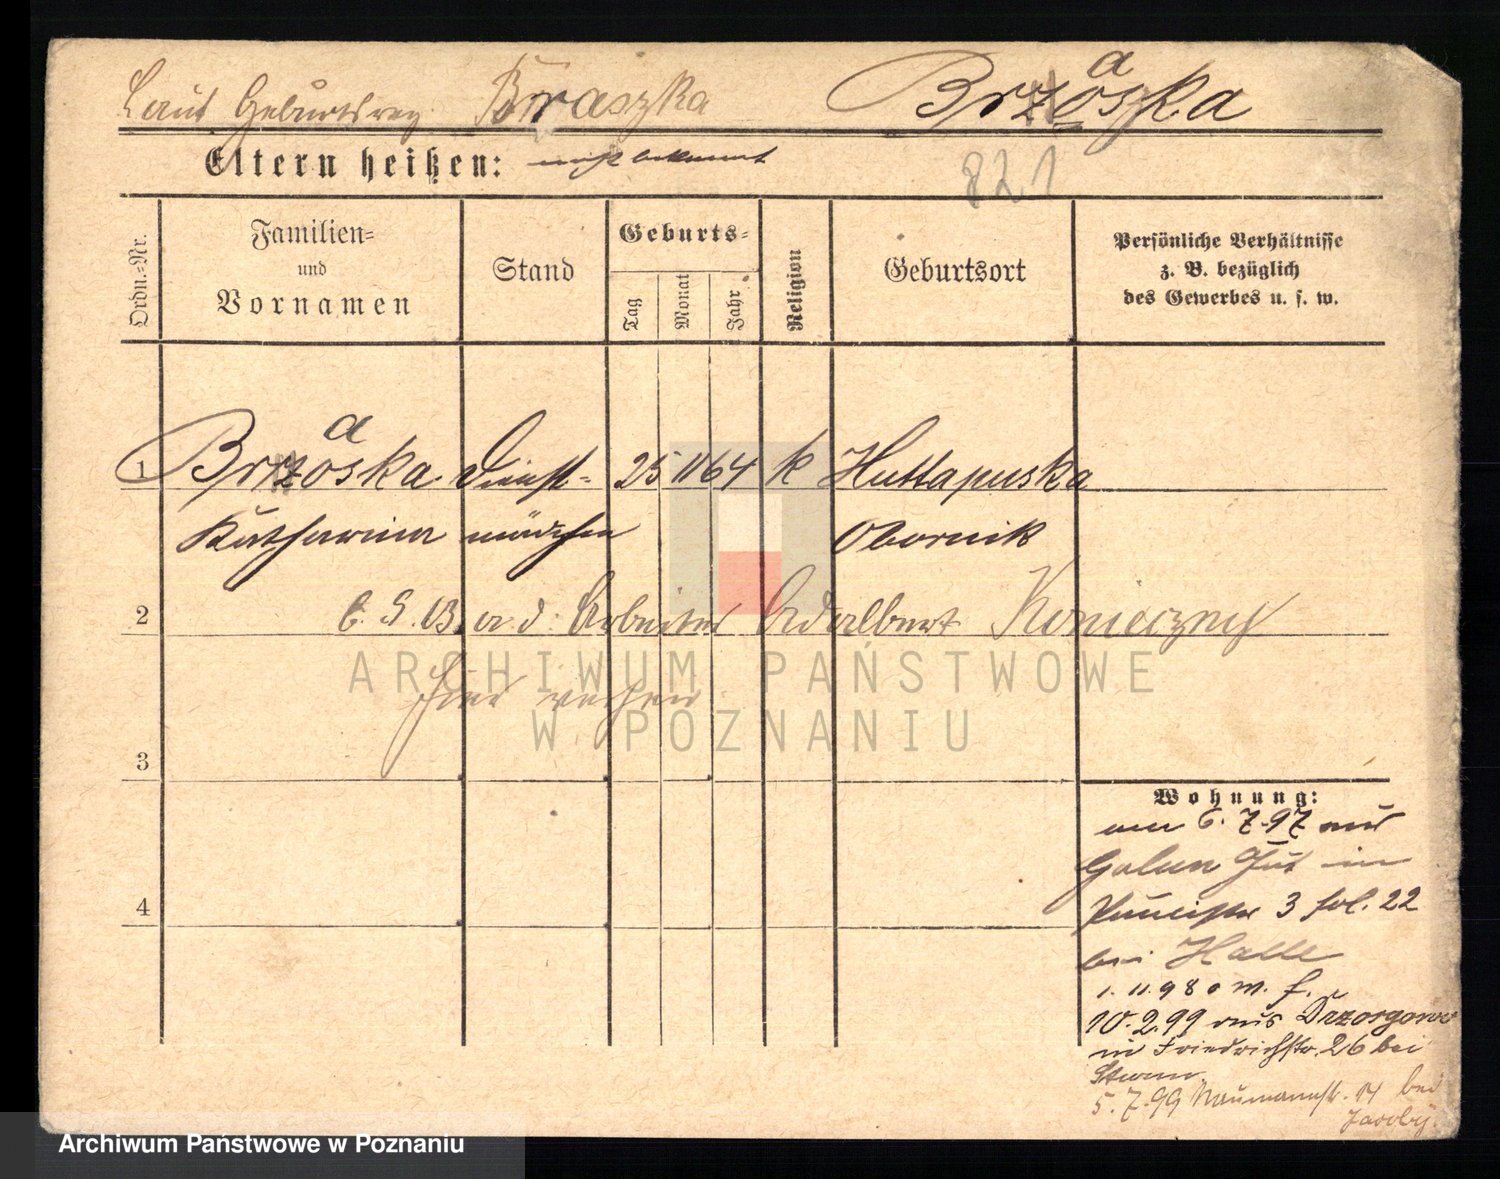 Laut Geburtsreg. Braszka Brzoska
a
Eltern heißen: nicht bekannt
821
Ordn.-Nr.
Familien-
und
Vornamen
Stand
Geburts-
Tag
Monat
Jahr
Religion
Geburtsort
Persönliche Verhältnisse
z. B. bezüglich
des Gewerbes u. s. w.
a
1 Brzoska Dienst- 25 11 64 k Huttapuska
Katharina mädchen Obornik
2 E. S. B. a. d. Arbeiter Adalbert Konieczny
3
4
Wohnung:
am 6. 7. 97 aus
Golun Gut in
3 fol. 22
bei Halle
1. 11. 98 o W. f.
10. 2. 99 aus
in Friedrichstr. 26 bei
Sturm
5. 7. 99 Naumannstr. 14 bei
Jacoby
ARCHIWUM PAŃSTWOWE
W POZNANIU
Archiwum Państwowe w Poznaniu